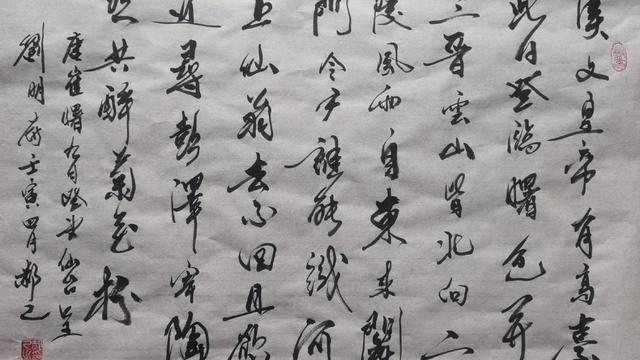 漢文皇帝有高臺
此日登臨曙色开
三晉雲山皆北向二
陵風雨自東来關
門令尹誰能識河
上仙翁去不回且欲
近尋彭澤宰陶
然共醉菊花杯
唐崔曙九日登望仙台呈
劉明府壬寅四月郝